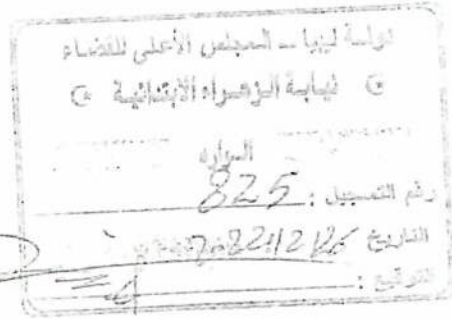 دولة ليبيا - المجلس الأعلى للقضاء
نيابة الزهراء الابتدائية
الوارد
رقم التسجيل : 825
التاريخ
التوقيع :